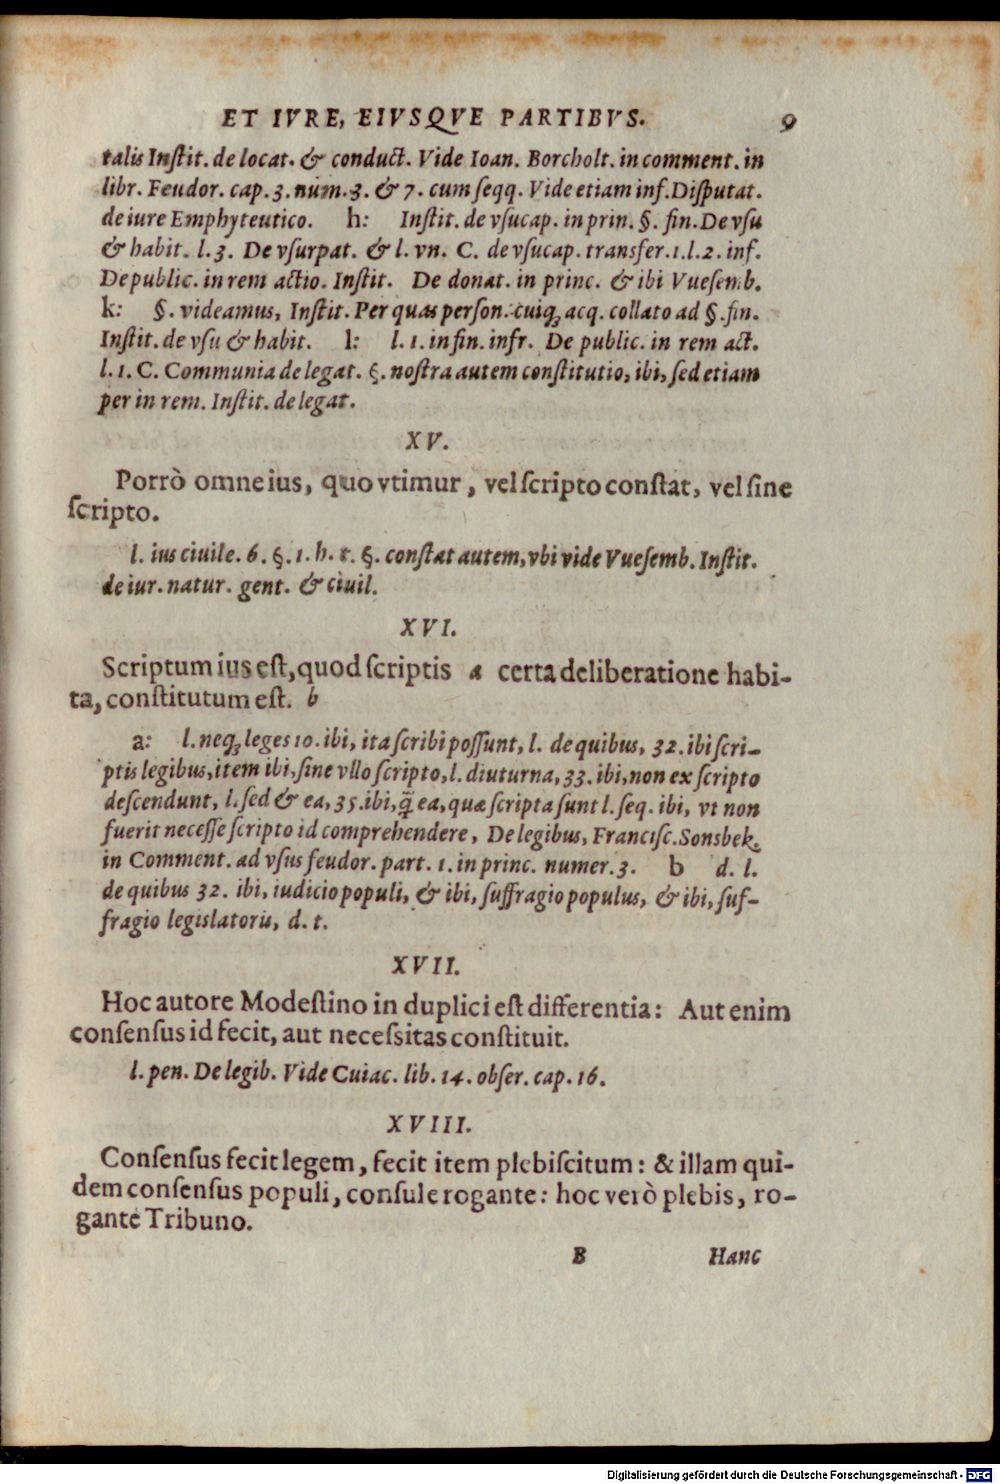 ET IVRE, EIVSQVE PARTIBVS. 9
talis Inſtit. de locat. & conduct. Vide Ioan. Borcholt. in comment. in
libr. Feudor. cap. 3. num. 3. & 7. cum ſeqq. Vide etiam inf. Diſputat.
de iure Emphyteutico. h: Inſtit. de vſucap. in prin. §. fin. De vſu
& habit. l. 3. De vſurpat. & l. vn. C. de vſucap. transfer. 1. l. 2. inf.
De public. in rem actio. Inſtit. De donat. in princ. & ibi Vueſemb.
k: §. videamus, Inſtit. Per quas perſon. cuiqꝫ acq. collato ad §. fin.
Inſtit. de vſu & habit. l: l. 1. in fin. infr. De public. in rem act.
l. 1. C. Communia de legat. §. noſtra autem conſtitutio, ibi, ſed etiam
per in rem. Inſtit. de legat.
XV.
Porrò omne ius, quo vtimur, vel ſcripto conſtat, vel ſine
ſcripto.
l. ius ciuile. 6. §. 1. h. t. §. conſtat autem, vbi vide Vueſemb. Inſtit.
de iur. natur. gent. & ciuil.
XVI.
Scriptum ius eſt, quod ſcriptis a certa deliberatione habi-
ta, conſtitutum eſt. b
a: l. neqꝫ leges 10. ibi, ita ſcribi poſſunt, l. de quibus, 32. ibi ſcri-
ptis legibus, item ibi, ſine vllo ſcripto, l. diuturna, 33. ibi, non ex ſcripto
deſcendunt, l. ſed & ea, 35. ibi, q̃ ea, quæ ſcripta ſunt l. ſeq. ibi, vt non
fuerit neceſſe ſcripto id comprehendere, De legibus, Franciſc. Sonsbek.
in Comment. ad vſus feudor. part. 1. in princ. numer. 3. b d. l.
de quibus 32. ibi, iudicio populi, & ibi, ſuffragio populus, & ibi, ſuf-
fragio legislatoris, d. t.
XVII.
Hoc autore Modeſtino in duplici eſt differentia: Aut enim
conſenſus id fecit, aut neceſsitas conſtituit.
l. pen. De legib. Vide Cuiac. lib. 14. obſer. cap. 16.
XVIII.
Conſenſus fecit legem, fecit item plebiſcitum: & illam qui-
dem conſenſus populi, conſule rogante: hoc verò plebis, ro-
gante Tribuno.
B Hanc
Digitalisierung gefördert durch die Deutsche Forschungsgemeinschaft - DFG